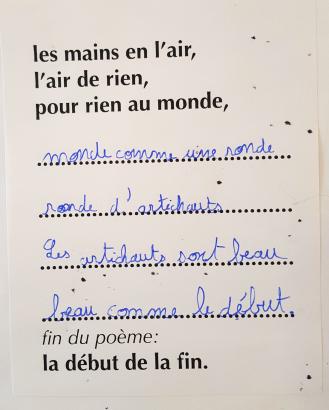 les mains en l'air,
l'air de rien,
pour rien au monde,
monde comme une ronde
ronde d'artichauts
Les artichauts sont beau
beau comme le début.
fin du poème:
la début de la fin.